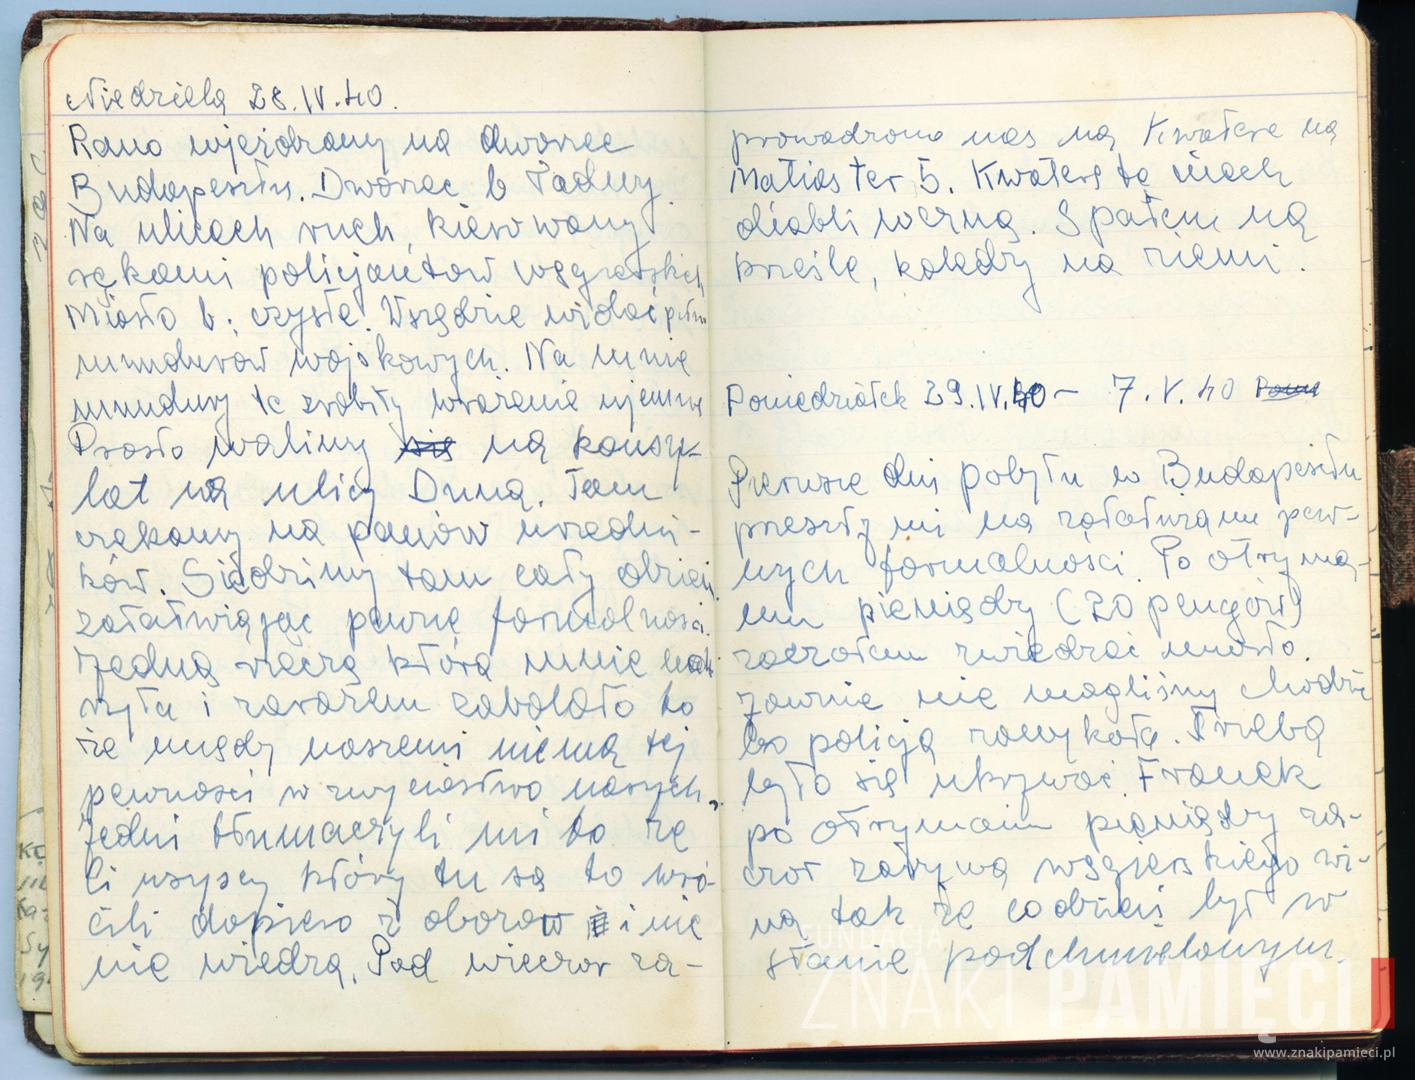 Niedziela 28.IV.40.
Rano wjeżdżamy na dworzec
Budapesztu. Dworzec b ładny.
Na ulicach ruch, kierowany
rękami policjantów węgierskich
Miasto b. czyste. Wszędzie widać pełno
mundurów wojskowych. Na mnie
mundury te zrobiły wrażenie ujemne
Prosto walimy się na konsu-
lat na ulicy Duna. Tam
czekamy na panów urzędni-
ków. Siedzimy tam cały dzień
załatwiając pewne formalności.
Jedną rzeczą która mnie
i zarazem zabolało to
że między naszemi niema tej
pewności w zwycięstwo naszych.
Jedni tłumaczyli mi to że
ci wszyscy którzy tu są to wró-
cili dopiero z obozów i nic
nie wiedzą. Pod wieczór za-
prowadzono nas na kwaterę na
Matias ter. 5. Kwaterę tę niech
diabli wezmą. Spałem na
krześle, koledzy na ziemi.
Poniedziałek 29.IV.40 – 7.V.40 Rano
Pierwsze dni pobytu w Budapeszcie
przeszły mi na załatwianiu pew-
nych formalności. Po otrzyma-
niu pieniędzy (20 pengów)
zacząłem zwiedzać miasto.
Jawnie nie mogliśmy chodzić
bo policja zamykała. Trzeba
było się ukrywać. Franek
po otrzymaniu pieniędzy za-
czął zażywać węgierskiego wi-
na tak że codzień był w
stanie podchmielonym.
FUNDACJA
ZNAKI PAMIĘCI
www.znakipamieci.pl